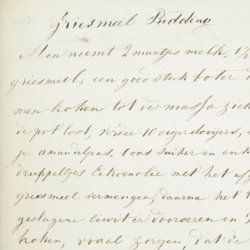 Griesmeel Pudding
Men neemt 2 maatjes melk, 1½
griesmeel, een goed stuk boter d
men koken tot de massa zich
de pot lost, verder 10 eijerdooyers,
je amandelgras, 1 ons suiker en enk
druppeltjes Citroenolie met het af
griesmeel vermengen, daarna het
geslagene eiwit er doorroeren en
koken, vooral zorgen, dat de